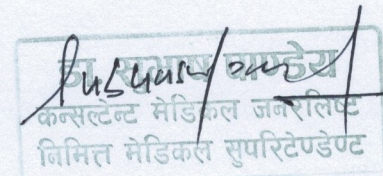 डा. सुभाष पाण्डेय
कन्सल्टेन्ट मेडिकल जनरलिष्ट
निमित्त मेडिकल सुपरिटेण्डेण्ट